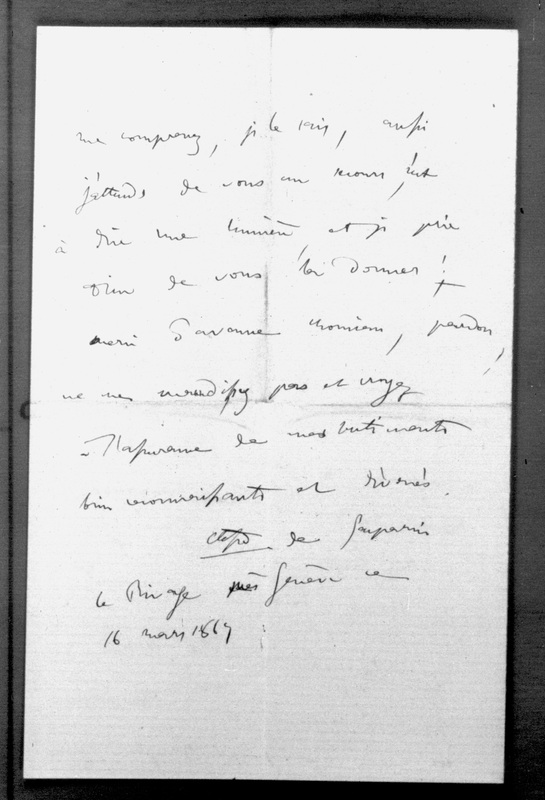 me comprenez, je le sais, aussi
j'attends de vous un secours, c'est
à dire une lumière, et je prie
Dieu de vous la donner !
merci d'avance monsieur, pardon,
ne me maudissez pas et croyez
à l'assurance de mes sentiments
bien reconnaissants et dévoués.
de Gasparin
Le Rivage près Genève ce
16 mars 1867